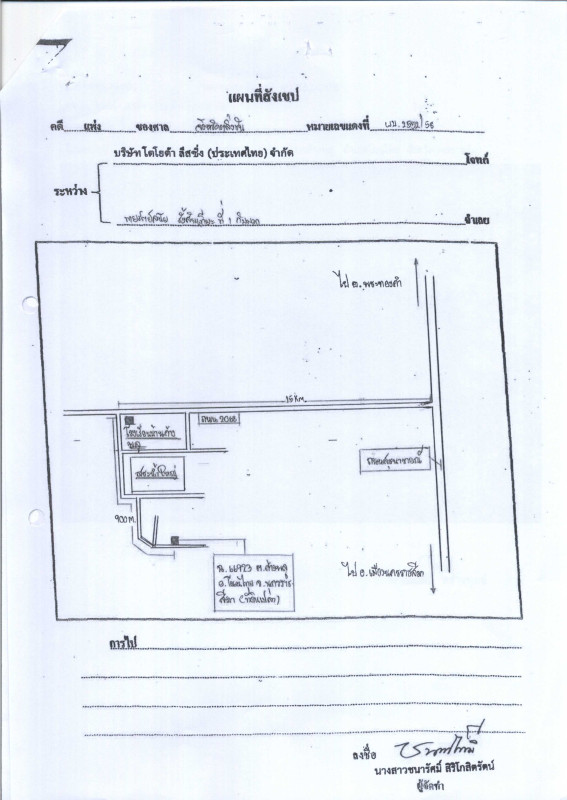 แผนที่สังเขป
คดี แพ่ง ของศาล หมายเลขแดงที่ ผบ. 2592/56
บริษัท โตโยต้า ลีสซิ่ง (ประเทศไทย) จำกัด โจทก์
ระหว่าง
ที่ 1 กับพวก จำเลย
ไป อ.พระทองคำ
15 KM.
ถนน 2068
โรงเรียนบ้านค้าง
พลู
สระน้ำใหญ่
ถนนสุรนารายณ์
900 M.
ฉ. 61973
อ.โนนไทย จ.นครราช
สีมา (ที่ดินเปล่า)
ไป อ.เมืองนครราชสีมา
การไป
ลงชื่อ
นางสาวชนารัศมิ์ สิริโกสิตรัตน์
ผู้จัดทำ